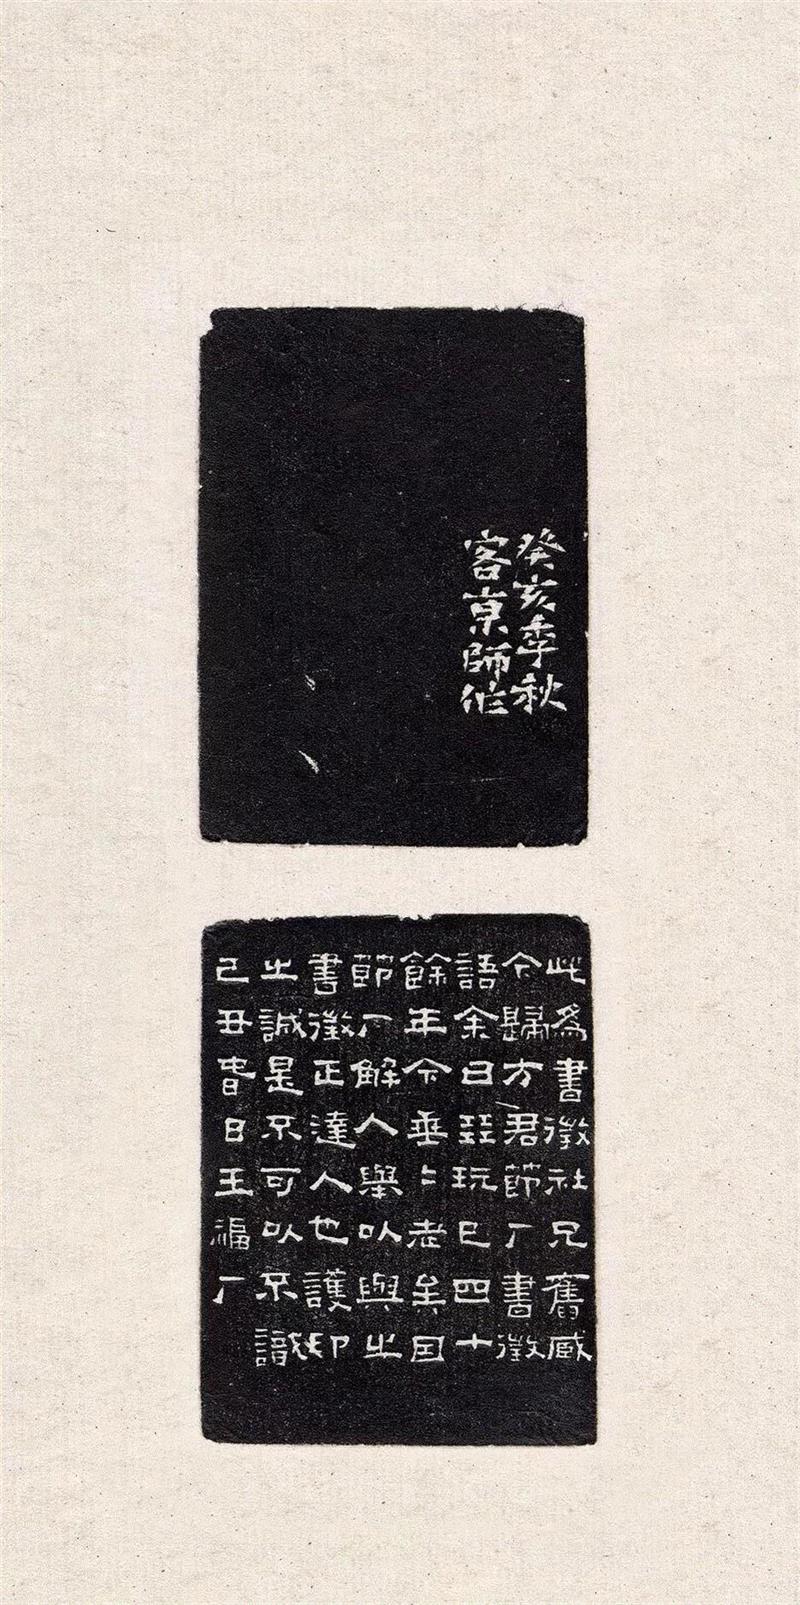 癸亥季秋
客京師作
此為書徵社兄舊藏
今歸方君節厂書徵
語余曰珏玩已四十
餘年今垂〻老矣因
節厂解人舉以與之
書徵正達人也護印
之誠是不可以不識
己丑春日王福厂